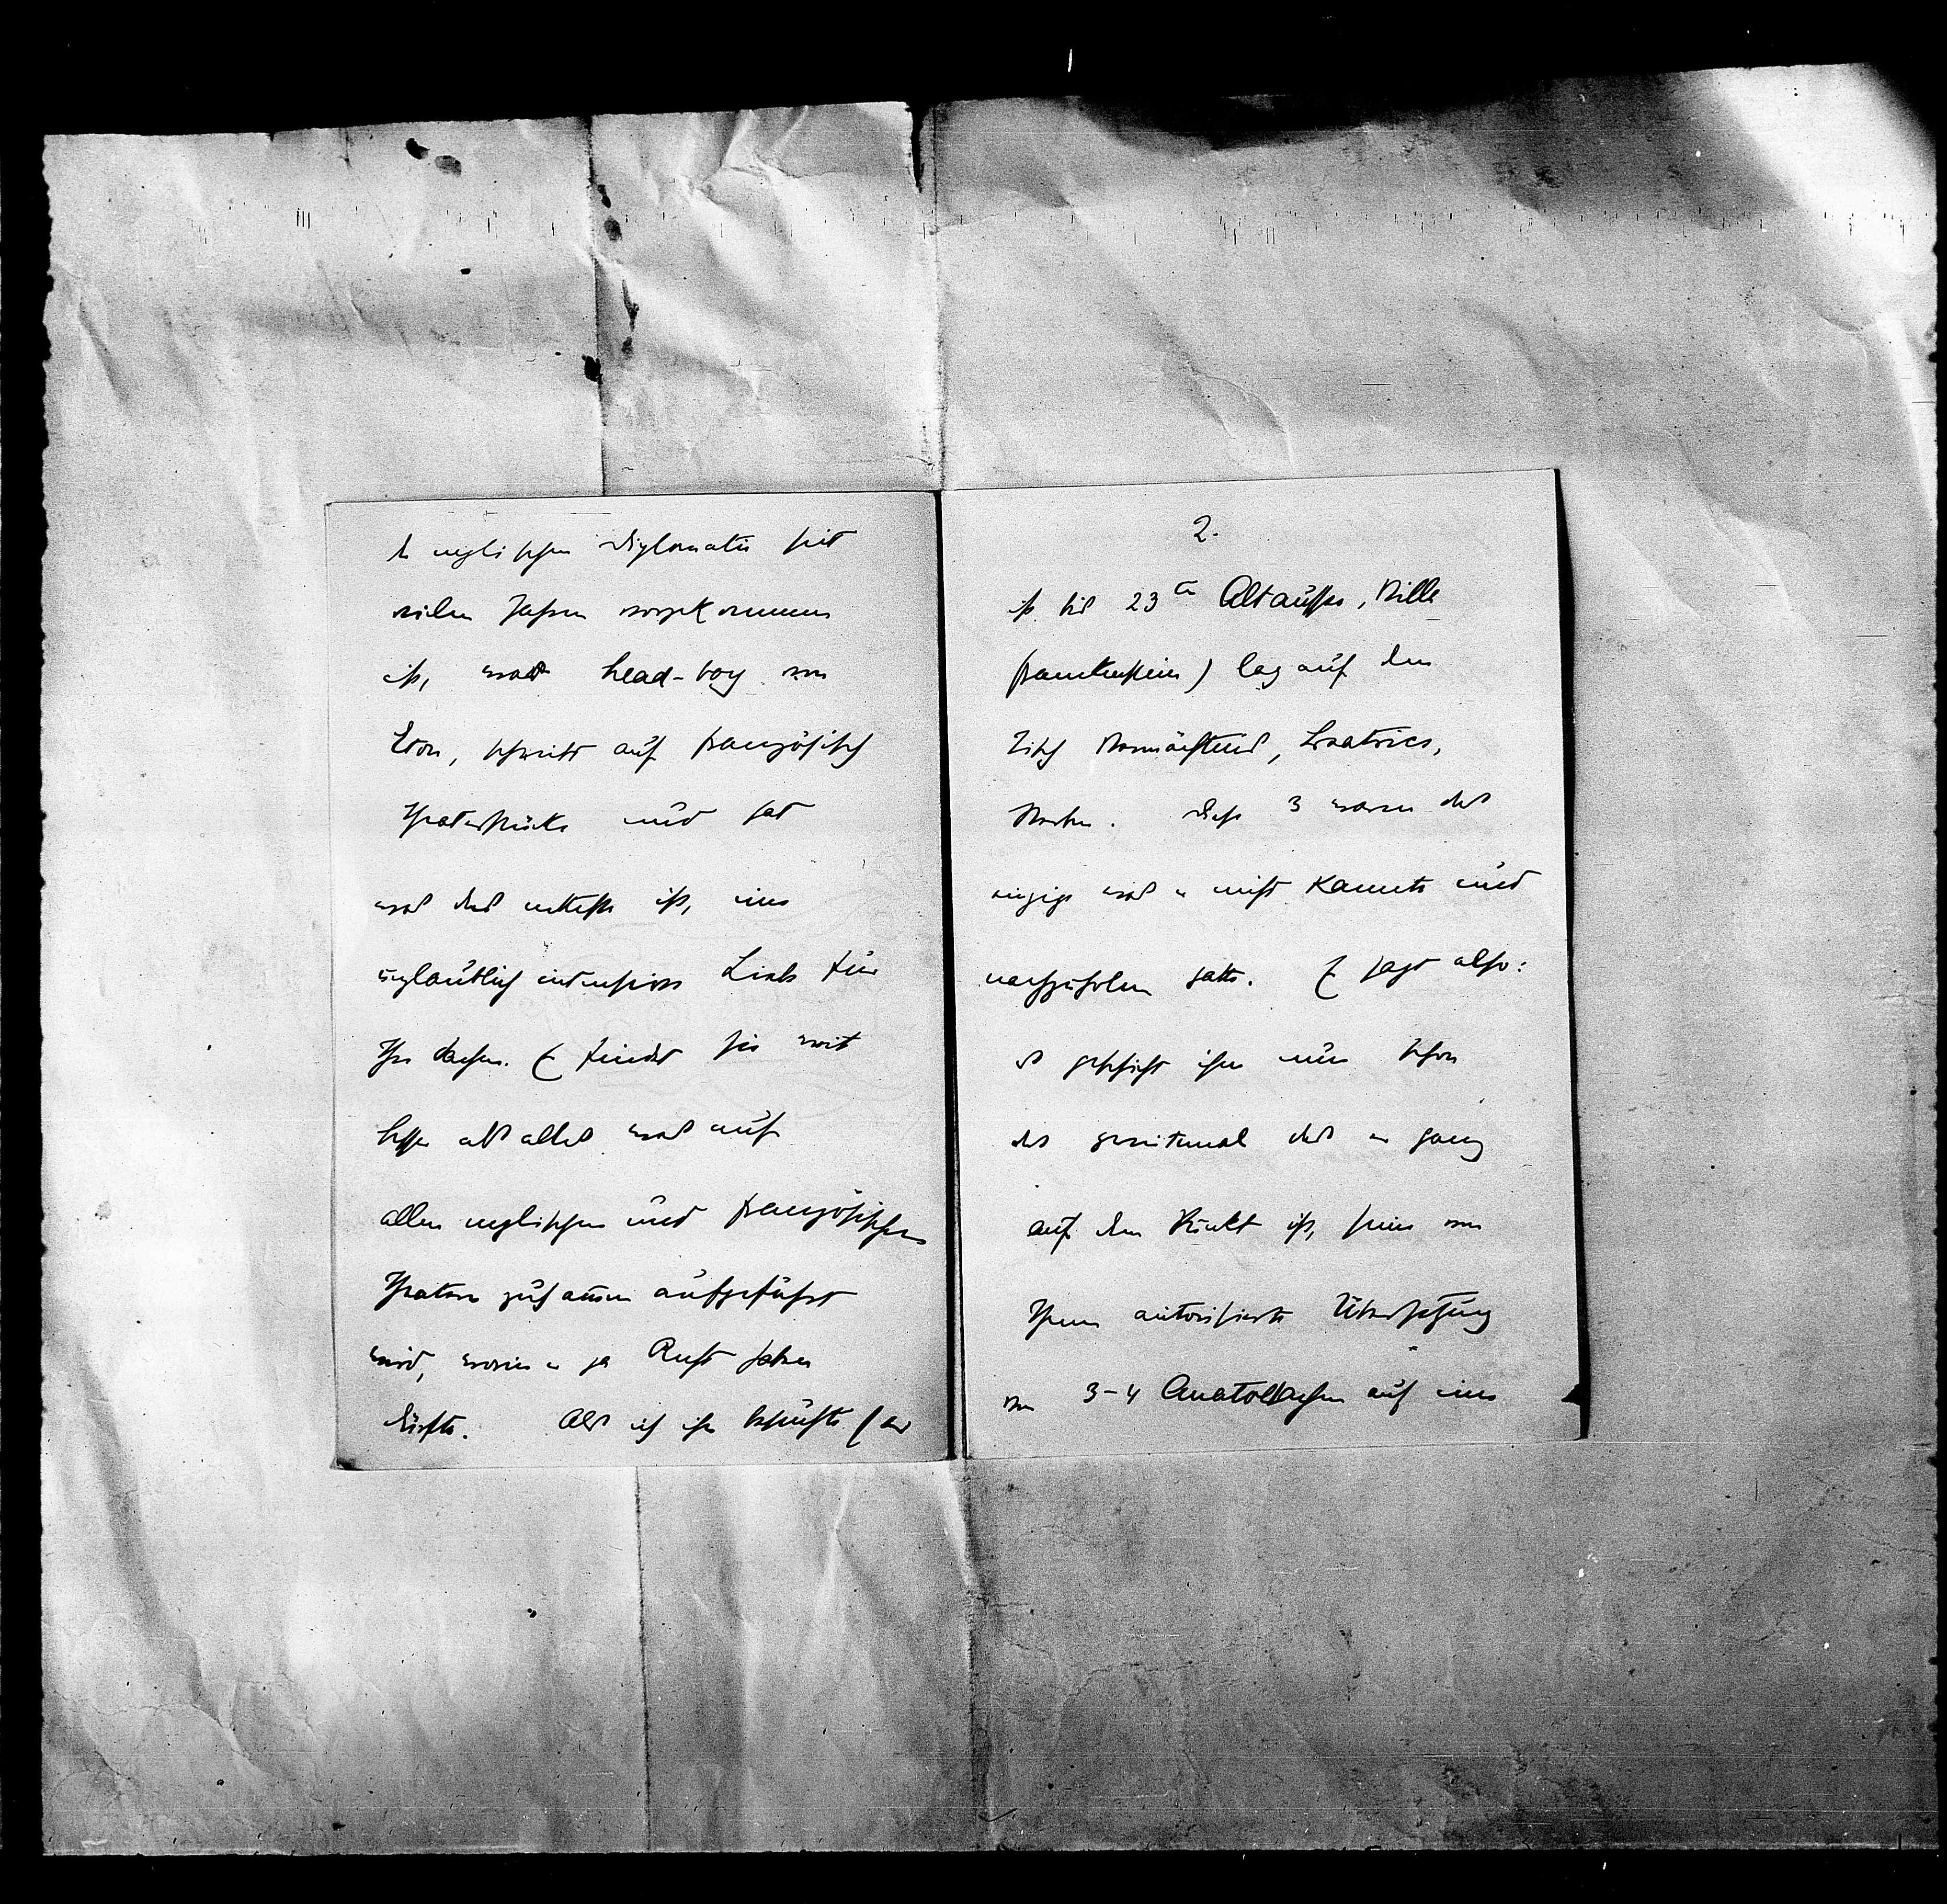 der englischen Diplomatie seit
vielen Jahren vorgekommen
ist, war head-boy von
Eton, schreibt auf französisch
Theaterstücke und hat
was das netteste ist, eine
unglaublich intensive Liebe für
Ihre Sachen. Er findet sie weit
besser als alles was auf
allen englischen und französischen
Theatern zusamen aufgeführt
wird, worin er ja Recht haben
dürfte. Als ich ihn besuchte (er
2.
ist bis 23ten Altaussee, Villa
Frankenstein) lag auf dem
Tisch Vermächtnis, Beatrice,
Sterben. Diese 3 waren das
einzige was er nicht kannte und
nachzuholen hatte. Er sagt also:
es geschieht ihm nun schon
das zweitemal das er ganz
auf dem Punkt ist, seine von
Ihnen autorisierte Übersetzung
von 3-4 Anatolsachen auf eine